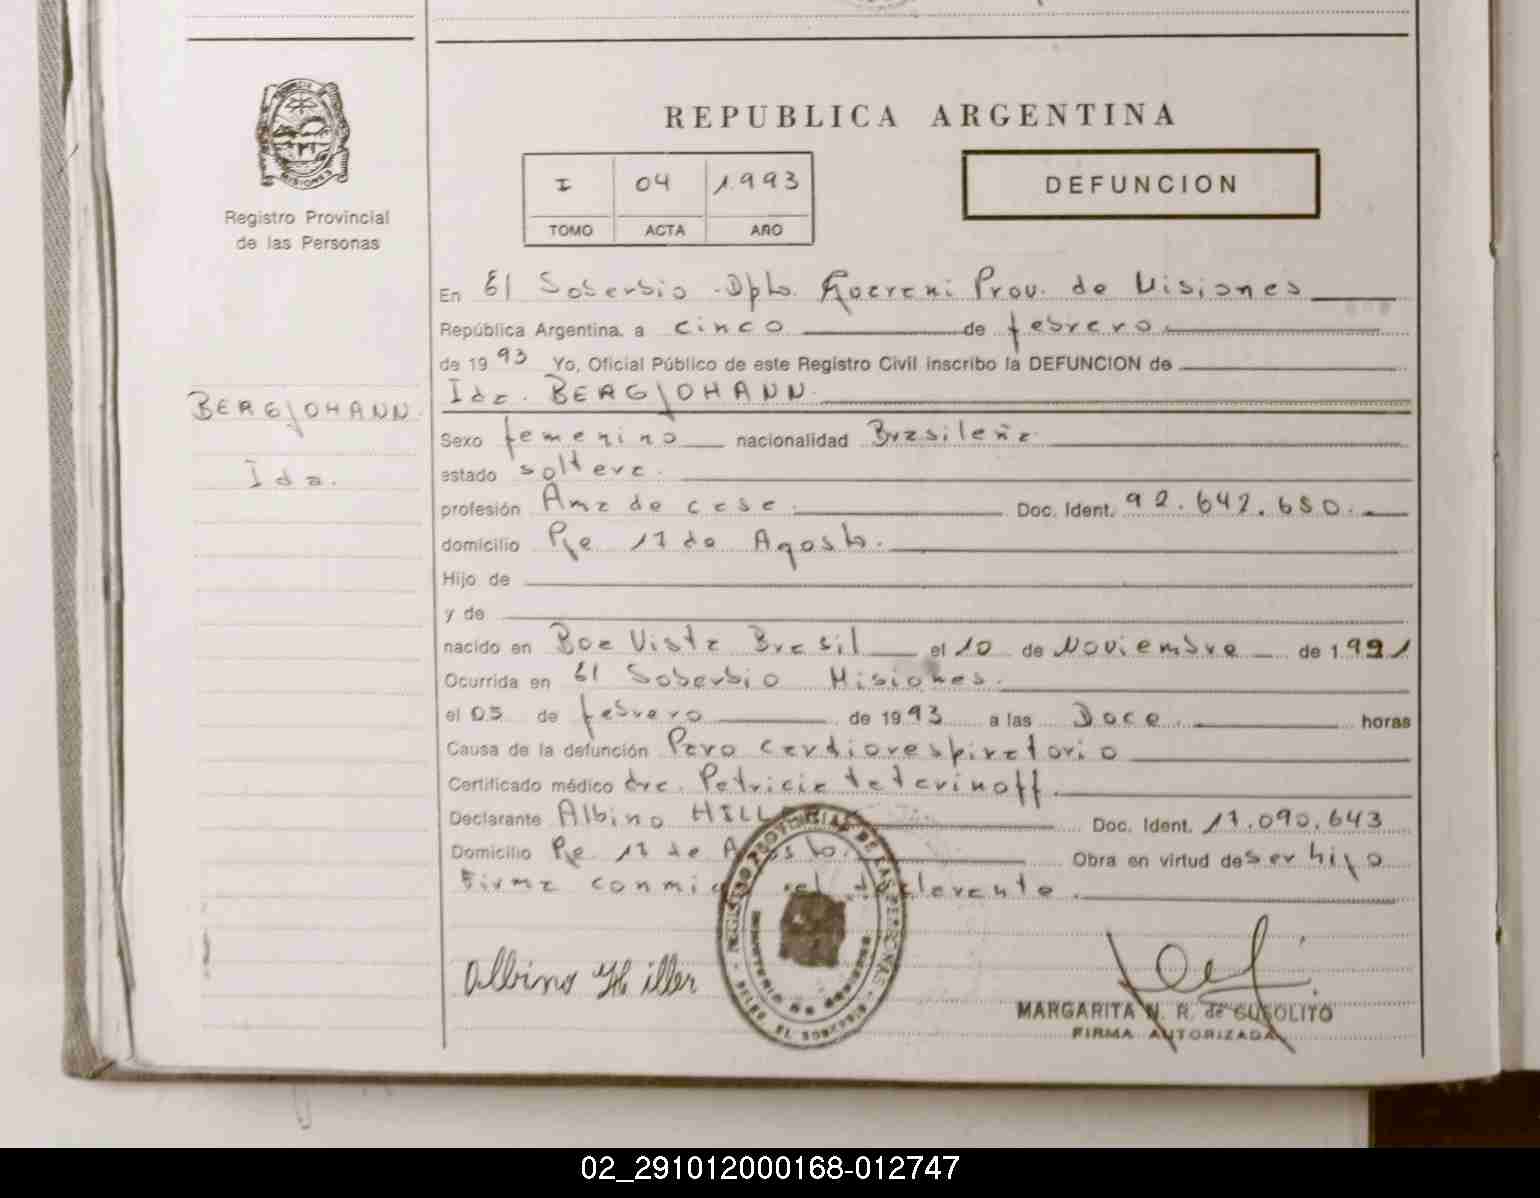 REPUBLICA ARGENTINA
I 04 1993
TOMO ACTA AÑO
DEFUNCION
PROVINCIA
MISIONES
Registro Provincial
de las Personas
BERGJOHANN.
Ida.
En El Soberbio Dpto. Guarani Prov. de Misiones
República Argentina, a cinco de febrero
de 1993 Yo, Oficial Público de este Registro Civil inscribo la DEFUNCION de
Ida. BERGJOHANN.
Sexo femenino nacionalidad Brasileña
estado soltera.
profesión Ama de casa. Doc. Ident. 92.642.680.
domicilio Pje 17 de Agosto.
Hijo de
y de
nacido en Boa Vista Brasil el 10 de Noviembre de 1991
Ocurrida en El Soberbio Misiones.
el 05 de febrero de 1993 a las Doce horas
Causa de la defunción Paro cardiorespiratorio
Certificado médico dra. Patricia teterinoff.
Declarante Albino HILLER Doc. Ident. 17.090.643
Domicilio Pje 17 de Agosto. Obra en virtud de ser hijo
Firma conmigo el declarante.
Albino Hiller
REGISTRO PROVINCIAL DE LAS PERSONAS
EL SOBERBIO
MARGARITA N. R. de SUSOLITO
FIRMA AUTORIZADA
02_291012000168-012747